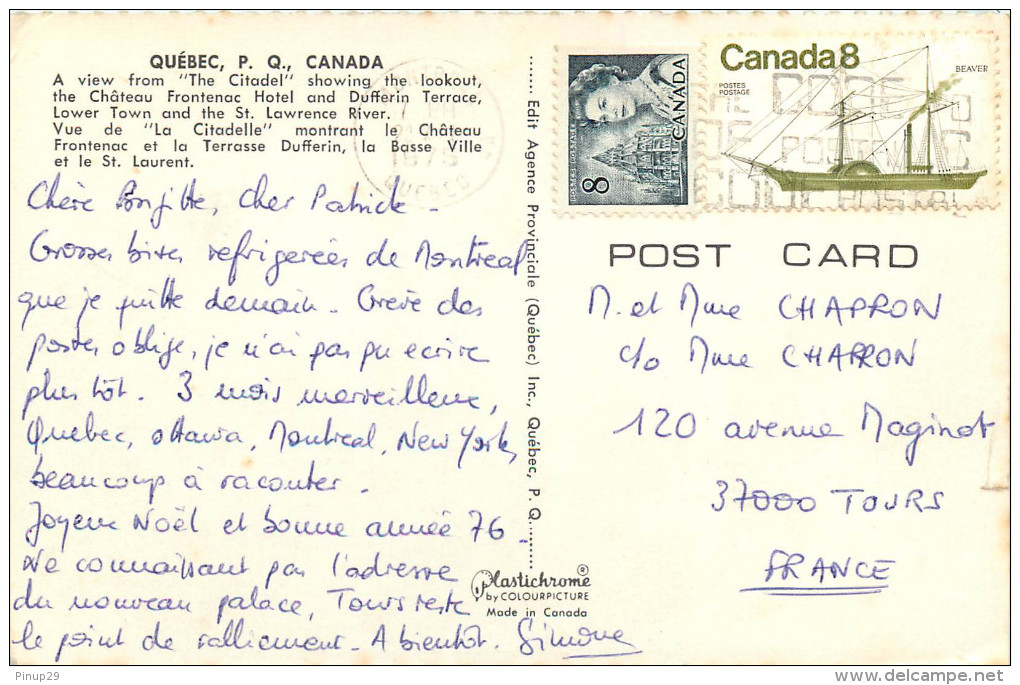 QUÉBEC, P. Q., CANADA
A view from "The Citadel" showing the lookout,
the Château Frontenac Hotel and Dufferin Terrace,
Lower Town and the St. Lawrence River.
Vue de "La Citadelle" montrant le Château
Frontenac et la Terrasse Dufferin, la Basse Ville
et le St. Laurent.
Chère Brigitte, Cher Patrick -
Grosses bises réfrigérées de Montreal
que je quitte demain. Grève des
postes oblige, je n'ai pas pu ecrire
plus tôt. 3 mois merveilleux,
Quebec, Ottawa, Montreal, New York,
beaucoup à raconter.
Joyeux Noël et bonne année 76 -
Ne connaissant pas l'adresse
du nouveau palace, Tours reste
le point de ralliement. A bientôt. Simone
Edit Agence Provinciale (Québec) Inc., Québec, P. Q.
Plastichrome ®
by COLOURPICTURE
Made in Canada
CANADA
POSTES POSTAGE
8
Canada 8
POSTES
POSTAGE
BEAVER
CODE
POSTAL
QUEBEC
POST CARD
M. et Mme CHAPRON
c/o Mme CHAPRON
120 avenue Maginot
37000 TOURS
FRANCE
Pinup29
delcampe.net